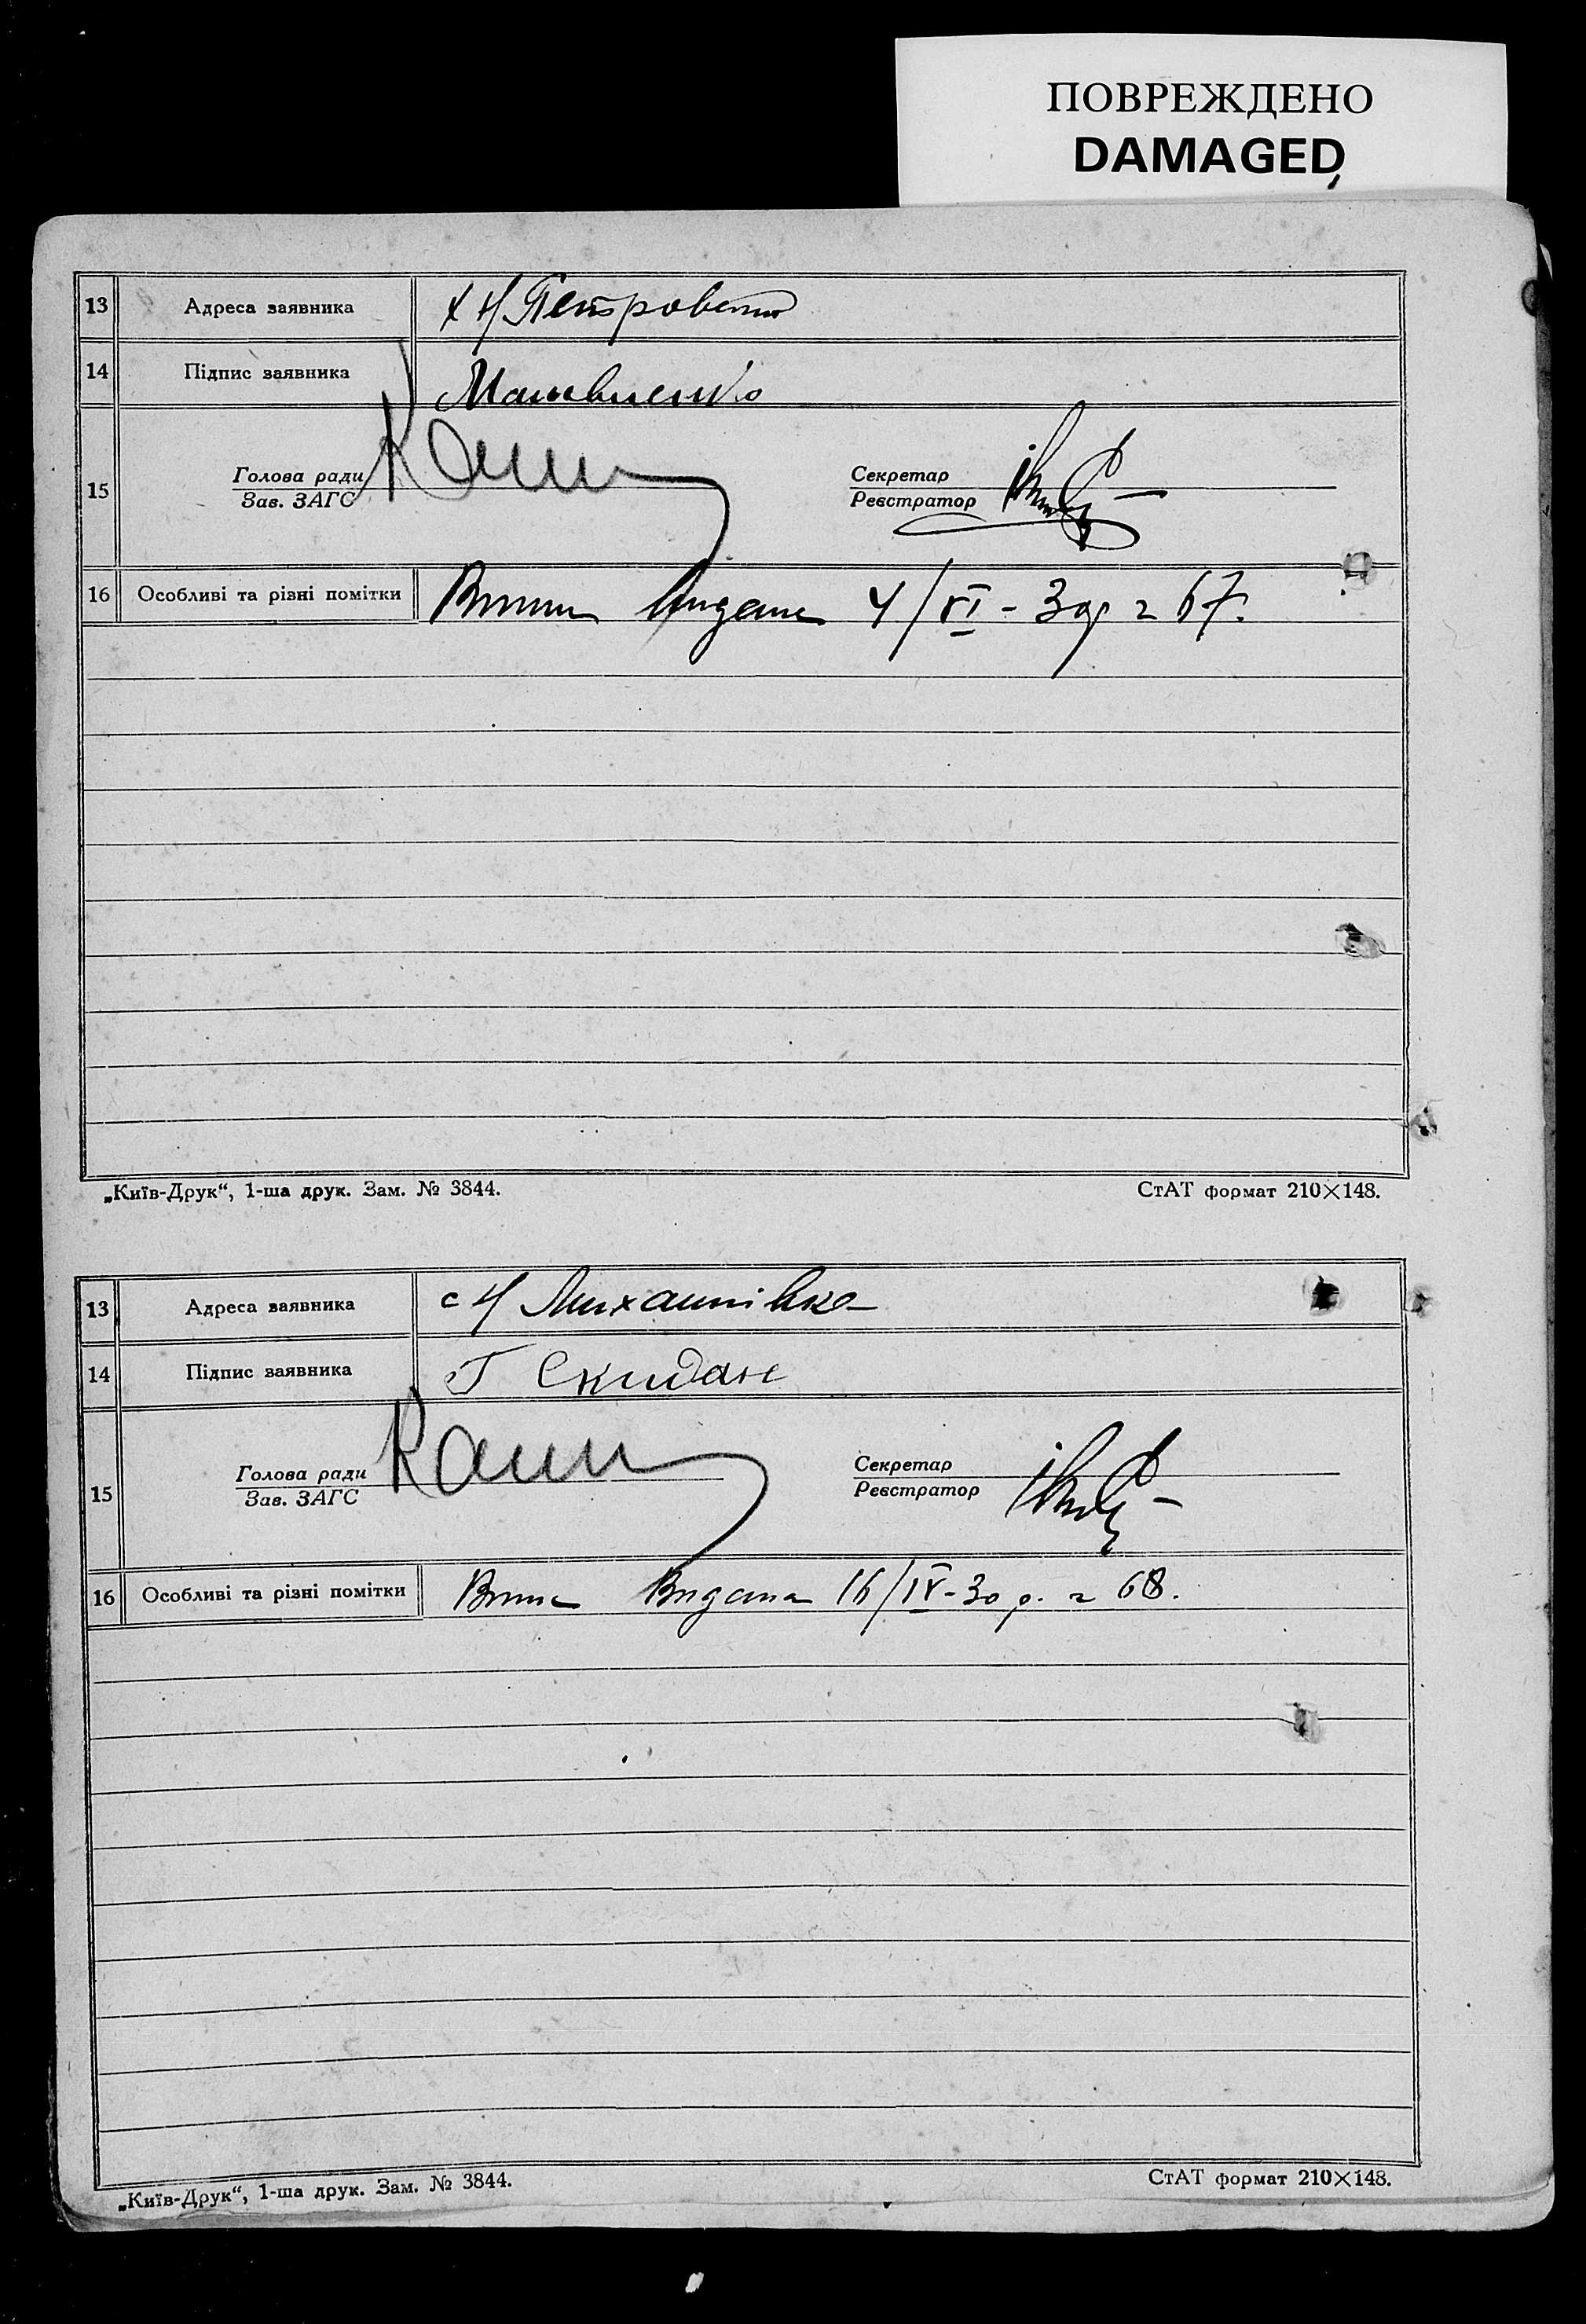 ПОВРЕЖДЕНО
DAMAGED
13 Адреса заявника х Н Петровська
14 Підпис заявника
15 Голова ради Секретар
Зав. ЗАГС Реєстратор
16 Особливі та різні помітки Видана 4/VI - 30 р 67.
„Київ-Друк“, 1-ша друк. Зам. № 3844. СтАТ формат 210×148.
13 Адреса заявника с Н Михайлівка
14 Підпис заявника Г Скидан
15 Голова ради Секретар
Зав. ЗАГС Реєстратор
16 Особливі та різні помітки Видана 16/IV - 30 р. 68.
„Київ-Друк“, 1-ша друк. Зам. № 3844. СтАТ формат 210×148.